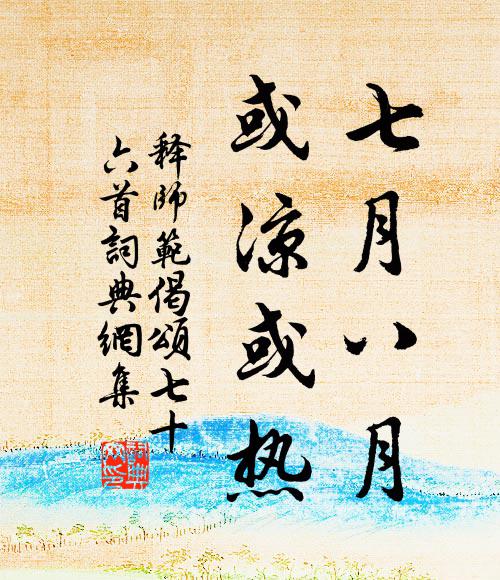 七月八月
或凉或热
释师範偈頌七十
六首詞典網集